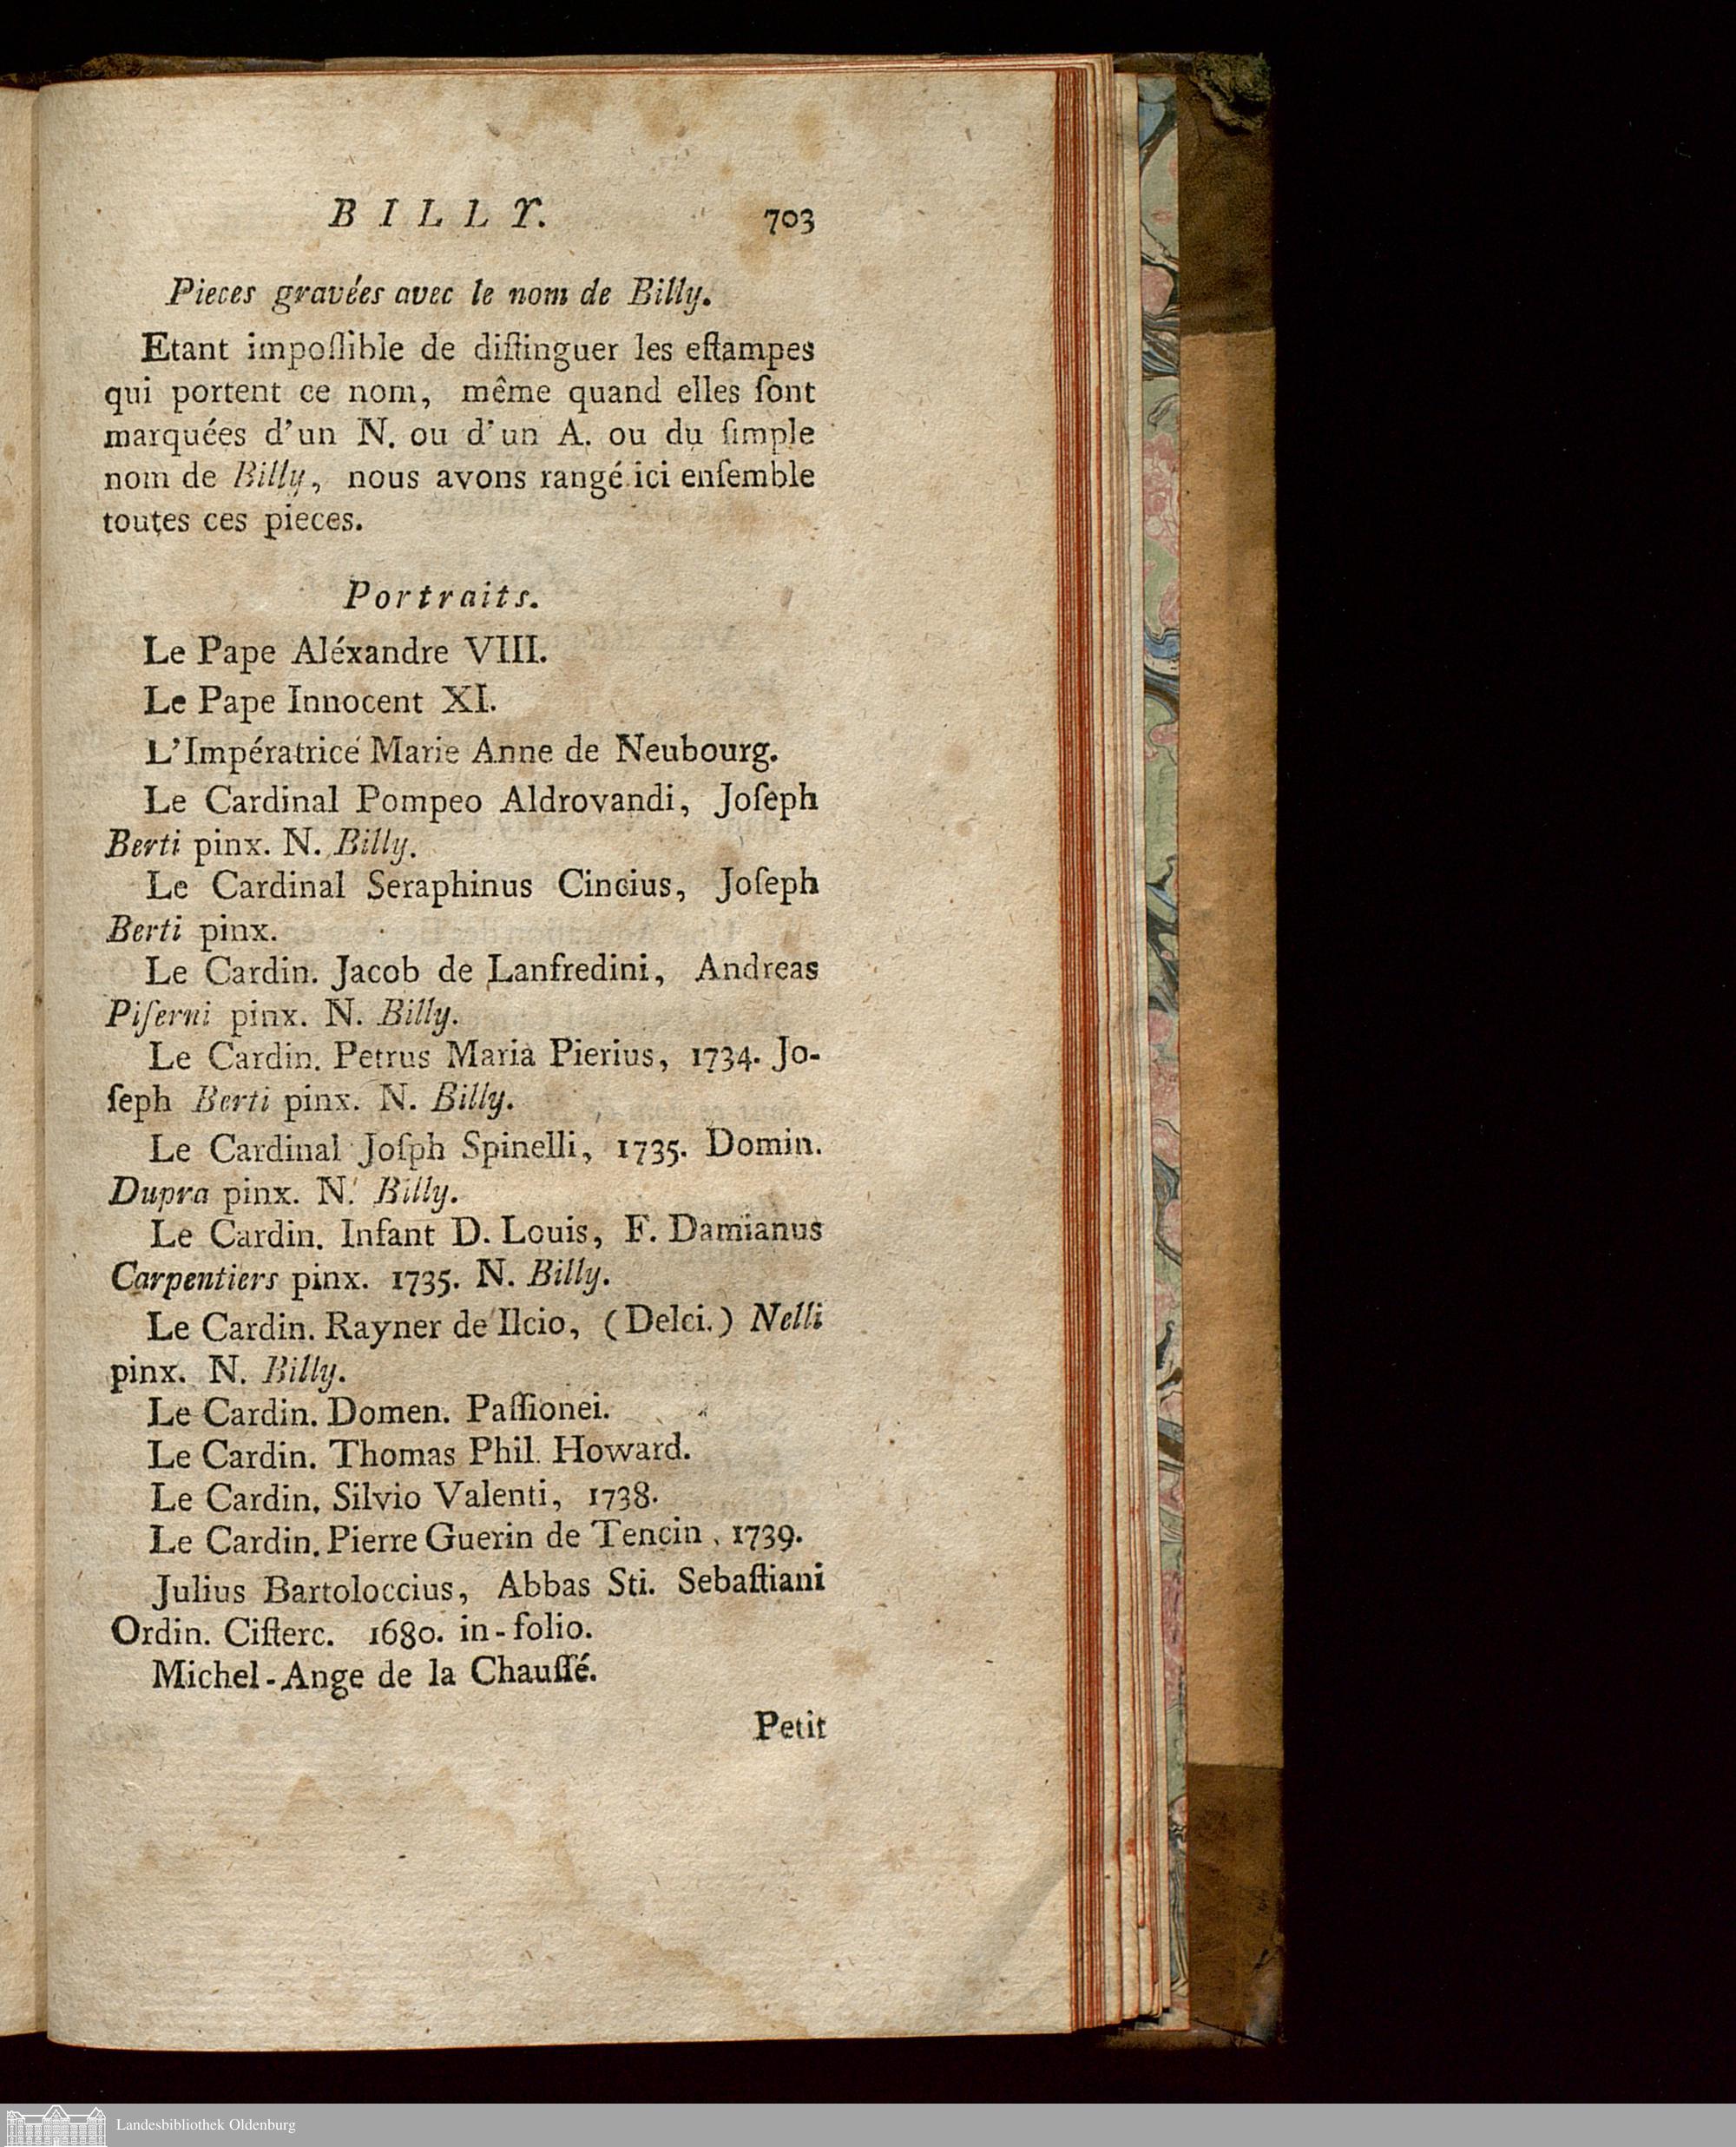 BILLY. 703
Pieces gravées avec le nom de Billy.
Etant impoſſible de diſtinguer les eſtampes
qui portent ce nom, même quand elles ſont
marquées d'un N. ou d'un A. ou du ſimple
nom de Billy, nous avons rangé ici enſemble
toutes ces pieces.
Portraits.
Le Pape Aléxandre VIII.
Le Pape Innocent XI.
L'Impératrice Marie Anne de Neubourg.
Le Cardinal Pompeo Aldrovandi, Joſeph
Berti pinx. N. Billy.
Le Cardinal Seraphinus Cincius, Joſeph
Berti pinx.
Le Cardin. Jacob de Lanfredini, Andreas
Piſerni pinx. N. Billy.
Le Cardin. Petrus Maria Pierius, 1734. Jo-
ſeph Berti pinx. N. Billy.
Le Cardinal Joſph Spinelli, 1735. Domin.
Dupra pinx. N. Billy.
Le Cardin. Infant D. Louis, F. Damianus
Carpentiers pinx. 1735. N. Billy.
Le Cardin. Rayner de Ilcio, (Delci.) Nelli
pinx. N. Billy.
Le Cardin. Domen. Paſſionei.
Le Cardin. Thomas Phil. Howard.
Le Cardin. Silvio Valenti, 1738.
Le Cardin. Pierre Guerin de Tencin, 1739.
Julius Bartoloccius, Abbas Sti. Sebaſtiani
Ordin. Ciſterc. 1680. in-folio.
Michel-Ange de la Chauſſé.
Petit
Landesbibliothek Oldenburg